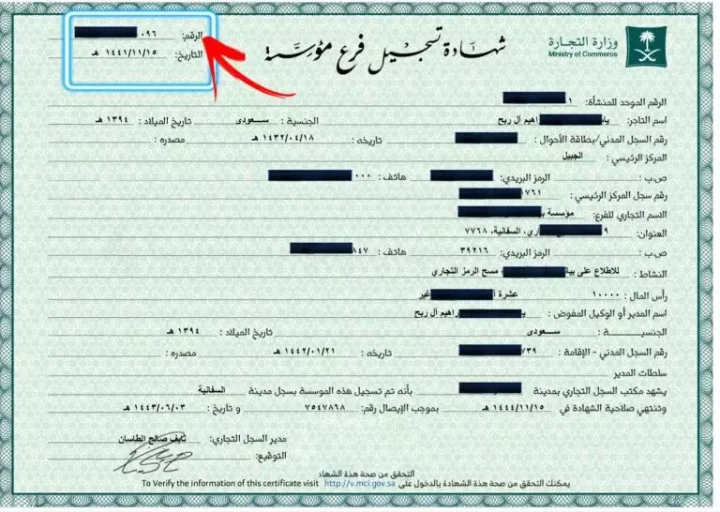 الرقم: ٠٩٦
التاريخ: ١٤٤١/١١/١٥ هـ
شهادة تسجيل فرع مؤسسة
وزارة التجارة
Ministry of Commerce
الرقم الموحد للمنشأة: ١
اسم التاجر: اهيم آل ربح الجنسية : سعودى تاريخ الميلاد : ١٣٩٤ هـ
رقم السجل المدني/بطاقة الأحوال: تاريخه : ١٤٣٢/٠٤/١٨ هـ مصدره :
المركز الرئيسي : الجبيل
ص.ب : الرمز البريدي: هاتف : ٠٠٠
رقم سجل المركز الرئيسي : ٧٦١
الاسم التجاري للفرع: مؤسسة
العنوان: ٩ اري، السفانية، ٧٧٦٨
ص.ب : الرمز البريدي: ٣٩٢١٦ هاتف : ٨٤٧
النشاط: للاطلاع على مسح الرمز التجاري
رأس المال : ١٠٠٠٠ عشرة غير
اسم المدير أو الوكيل المفوض : راهيم آل ربح
الجنسيـــــة : سعودى تاريخ الميلاد : ١٣٩٤ هـ
رقم السجل المدني - الإقامة : ٧٣٩ تاريخه : ١٤٤٢/٠١/٢١ هـ مصدره :
سلطات المدير
يشهد مكتب السجل التجاري بمدينة بأنه تم تسجيل هذه الموسسة بسجل مدينة السفانية
وتنتهي صلاحية الشهادة في ١٤٤٤/١١/١٥ هـ بموجب الإيصال رقم: ٧٥٤٧٨٦٨ و تاريخ : ١٤٤٣/٠٦/٠٣ هـ
مدير السجل التجاري: نايف صالح الطاسان
التوقيع:
التحقق من صحة هذة الشهاد
يمكنك التحقق من صحة هذة الشهادة بالدخول على http://v.mci.gov.sa To Verify the information of this certificate visit